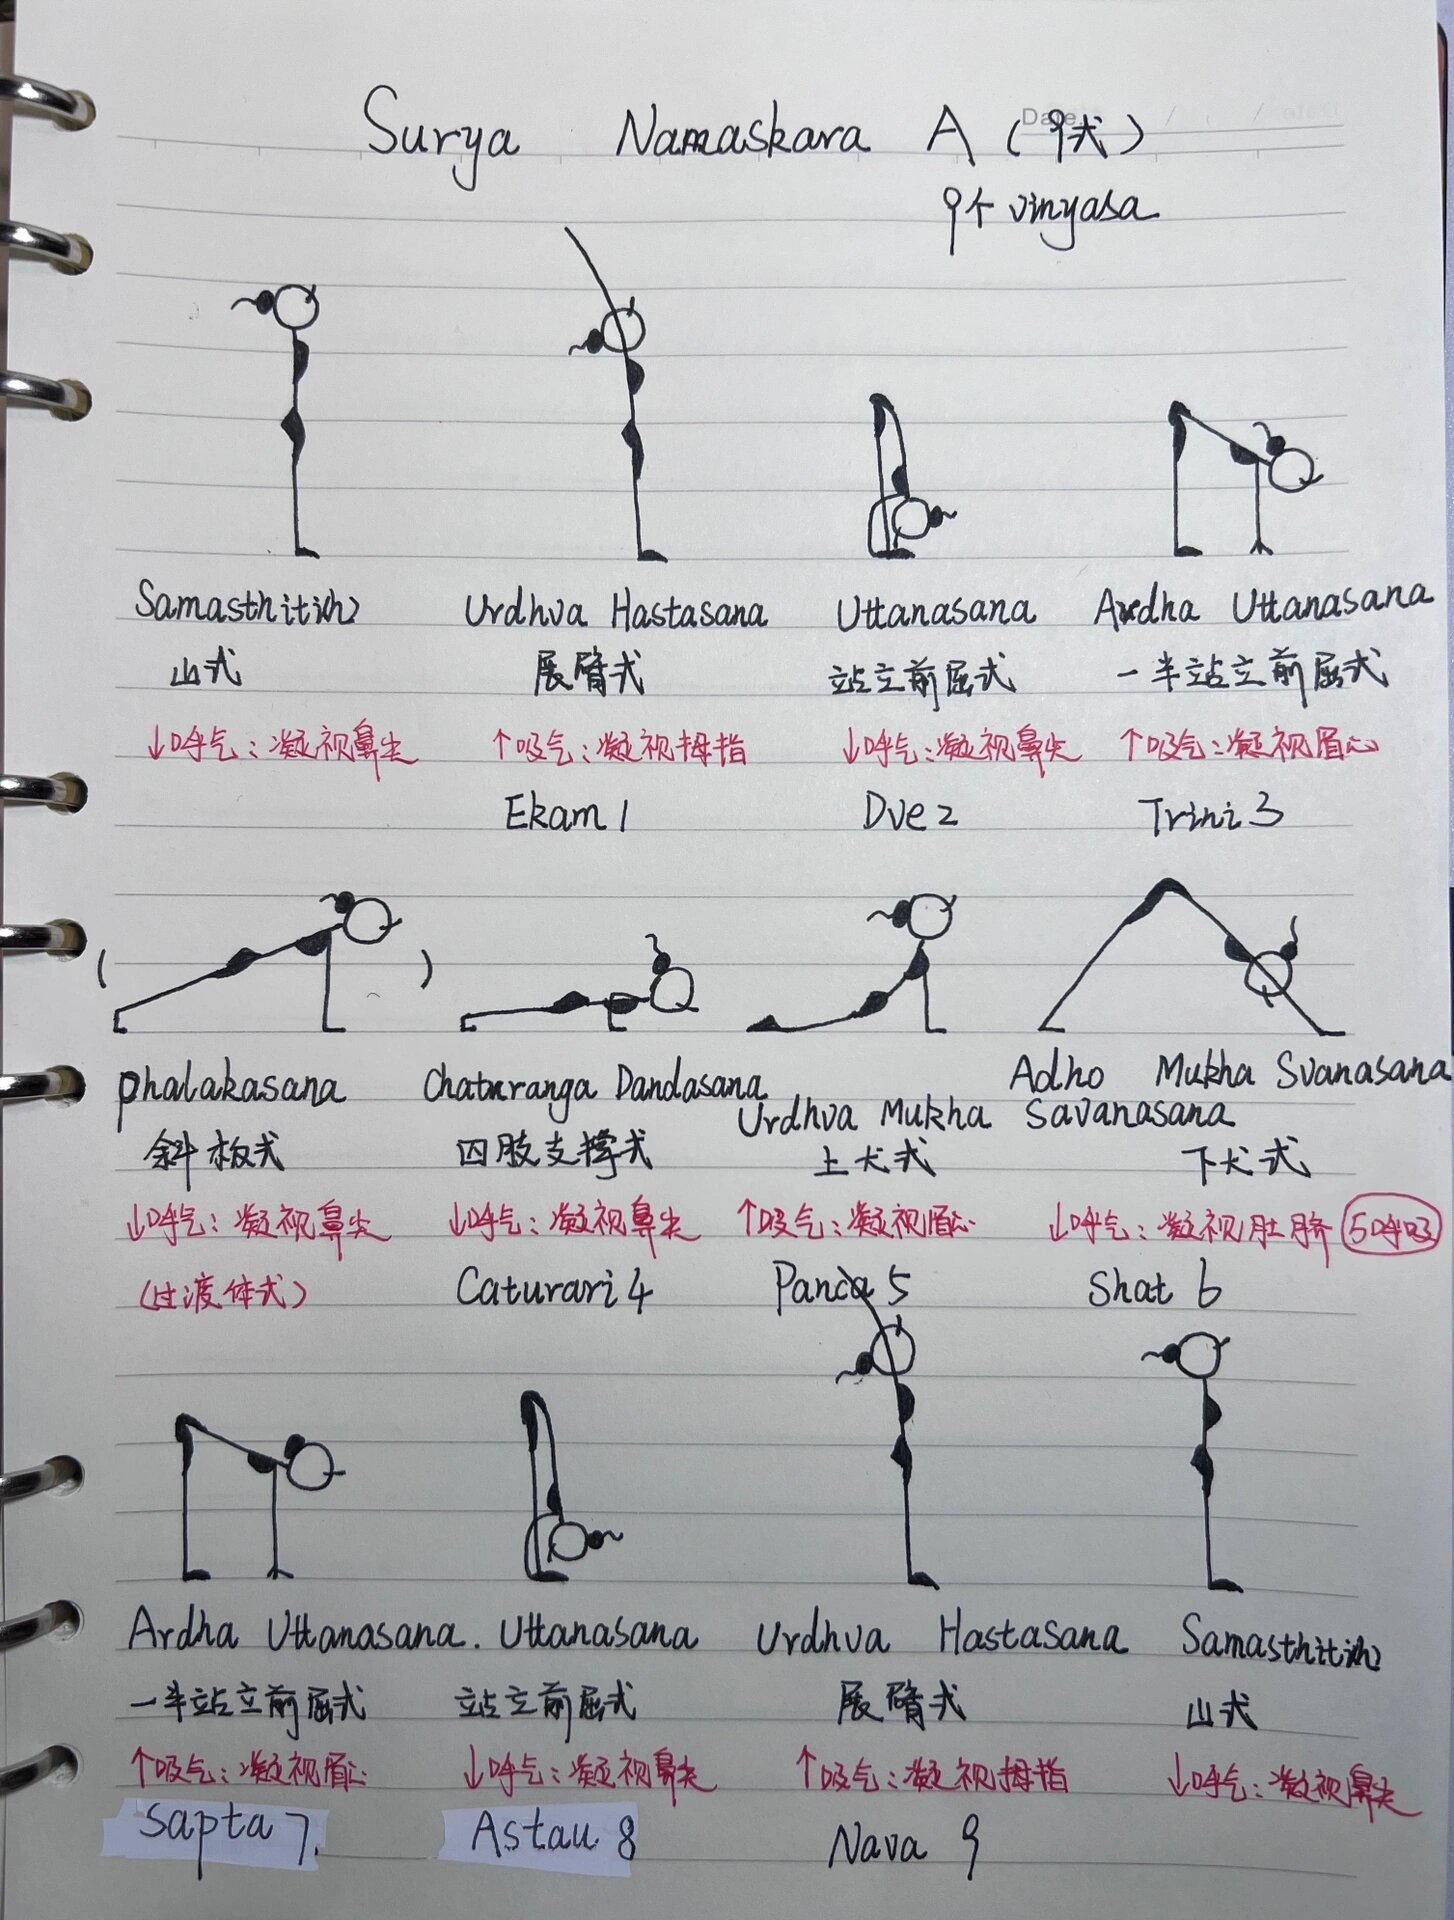 Date
Surya Namaskara A (9式)
9个 vinyasa
Samasthitihi Urdhva Hastasana Uttanasana Ardha Uttanasana
山式 展臂式 站立前屈式 一半站立前屈式
↓呼气:凝视鼻尖 ↑吸气:凝视拇指 ↓呼气:凝视鼻尖 ↑吸气:凝视眉心
Ekam 1 Dve 2 Trini 3
( )
phalakasana Chaturanga Dandasana Urdhva Mukha Savanasana Adho Mukha Svanasana
斜板式 四肢支撑式 上犬式 下犬式
↓呼气:凝视鼻尖 ↓呼气:凝视鼻尖 ↑吸气:凝视眉心 ↓呼气:凝视肚脐 5呼吸
(过渡体式) Caturari 4 Panca 5 Shat 6
Ardha Uttanasana. Uttanasana Urdhva Hastasana Samasthitihi
一半站立前屈式 站立前屈式 展臂式 山式
↑吸气:凝视眉心 ↓呼气:凝视鼻尖 ↑吸气:凝视拇指 ↓呼气:凝视鼻尖
Sapta 7. Astau 8 Nava 9